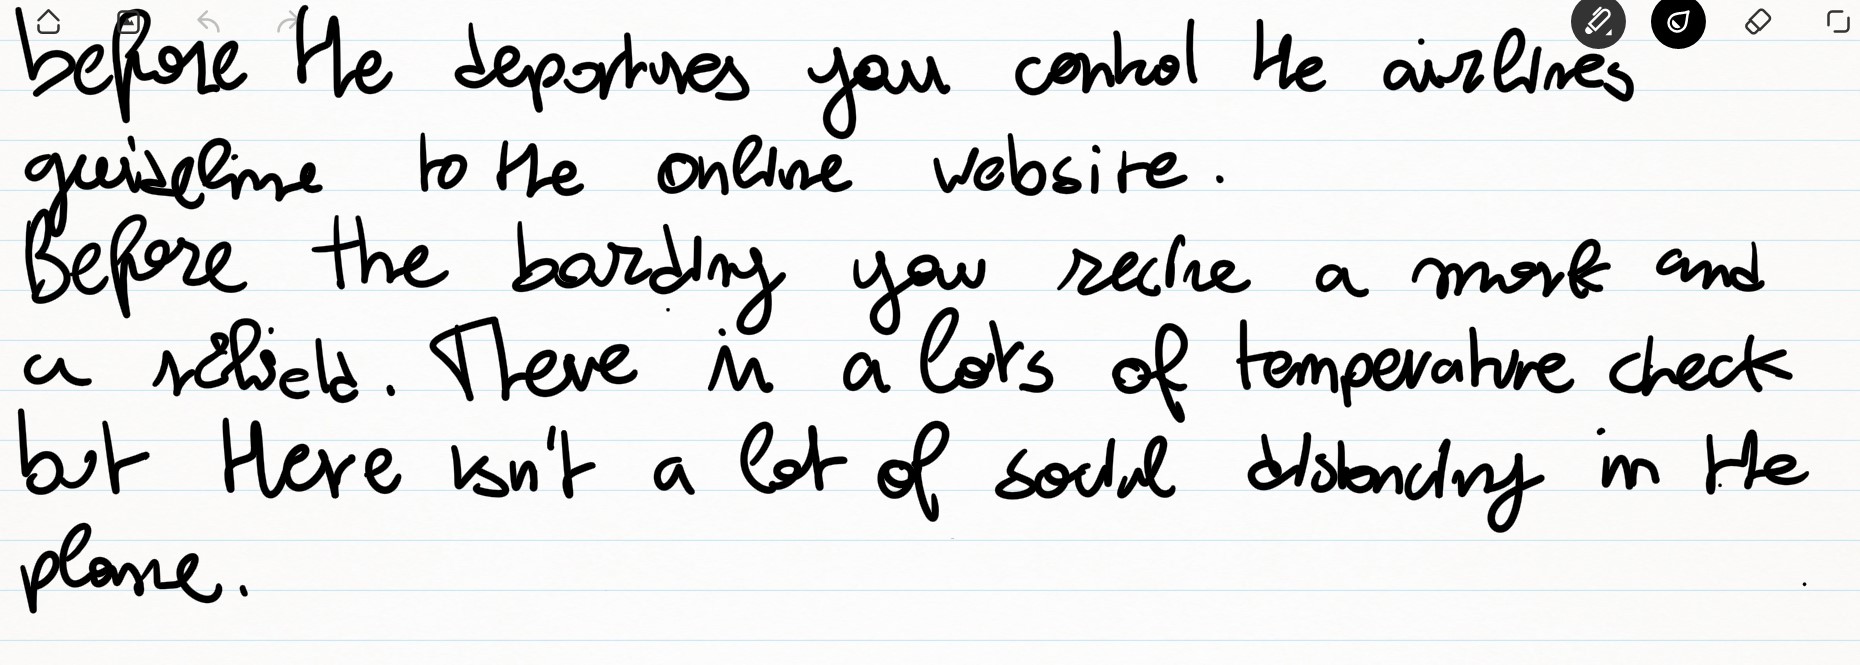 before the departures you control the airlines
guideline to the online website.
Before the barding you recive a mask and
a shield. There is a lots of temperature check
but there isn't a lot of social distancing in the
plane.